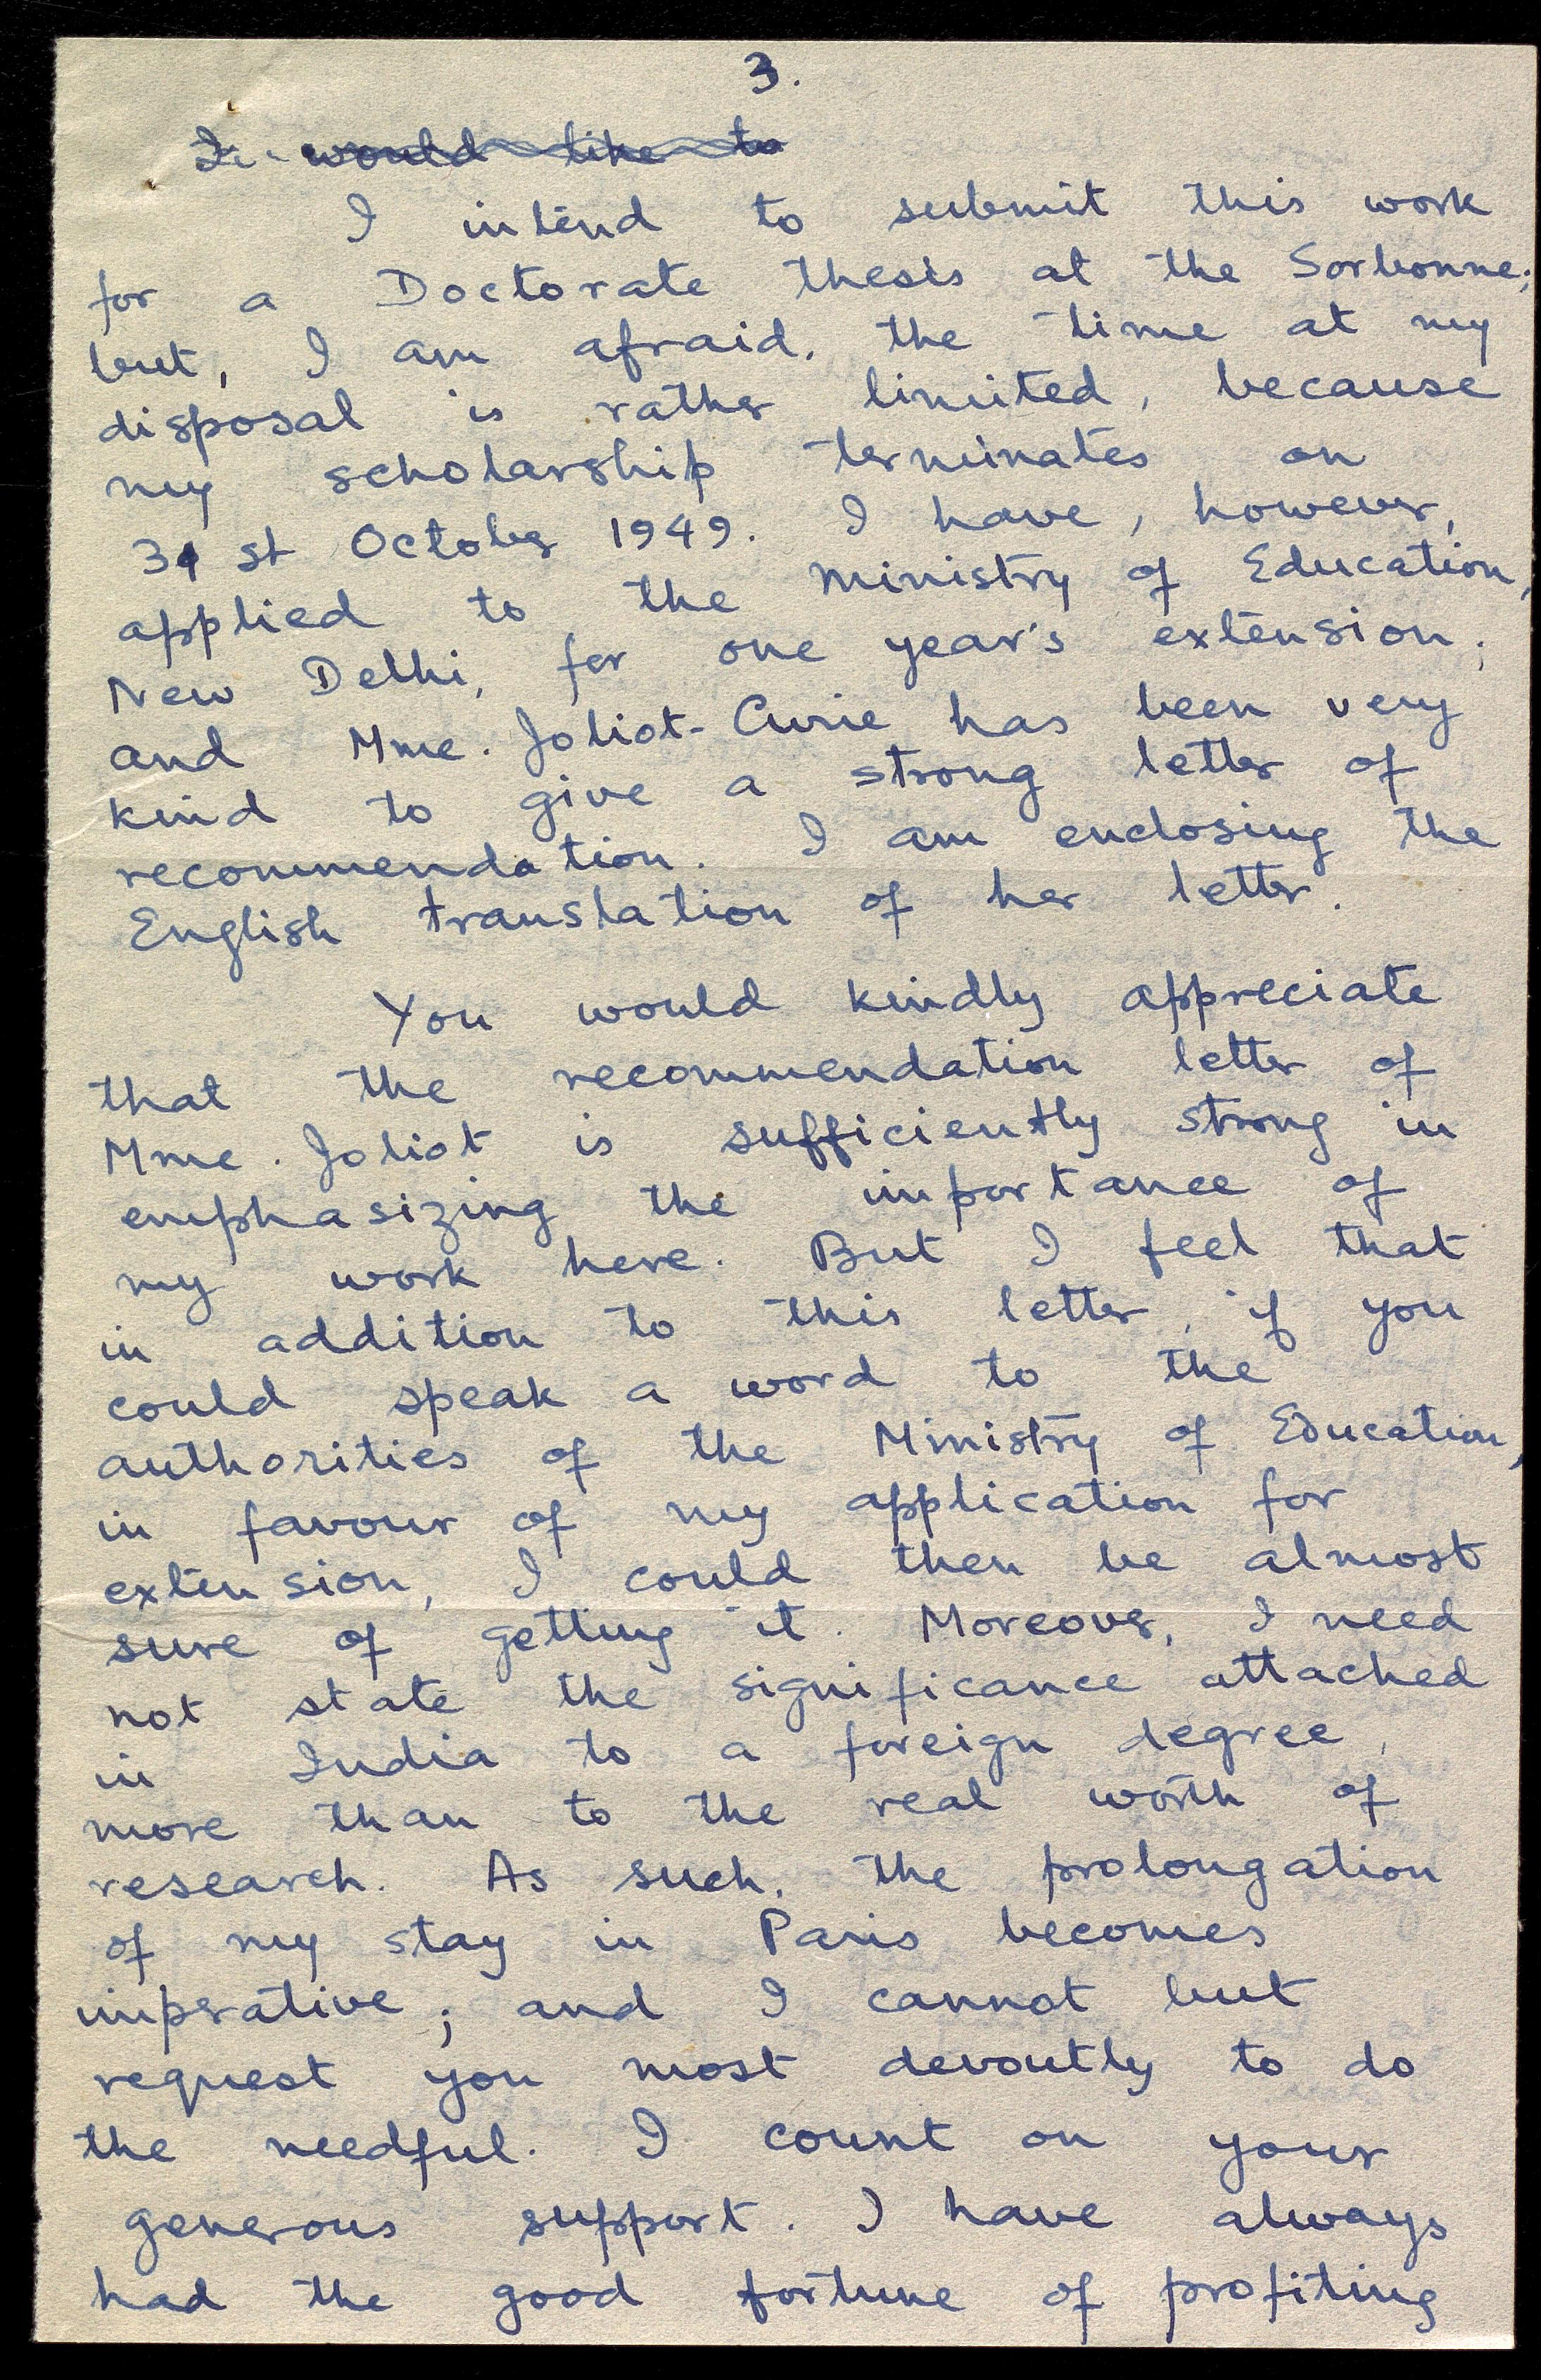 3.
I would like to
I intend to submit this work
for a Doctorate thesis at the Sorbonne;
but, I am afraid, the time at my
disposal is rather limited, because
my scholarship terminates on
31st October 1949. I have, however,
applied to the Ministry of Education,
New Delhi, for one year's extension;
and Mme. Joliot-Curie has been very
kind to give a strong letter of
recommendation. I am enclosing the
English translation of her letter.
You would kindly appreciate
that the recommendation letter of
Mme. Joliot is sufficiently strong in
emphasizing the importance of
my work here. But I feel that
in addition to this letter, if you
could speak a word to the
authorities of the Ministry of Education,
in favour of my application for
extension, I could then be almost
sure of getting it. Moreover, I need
not state the significance attached
in India to a foreign degree,
more than to the real worth of
research. As such, the prolongation
of my stay in Paris becomes
imperative; and I cannot but
request you most devoutly to do
the needful. I count on your
generous support. I have always
had the good fortune of profiting